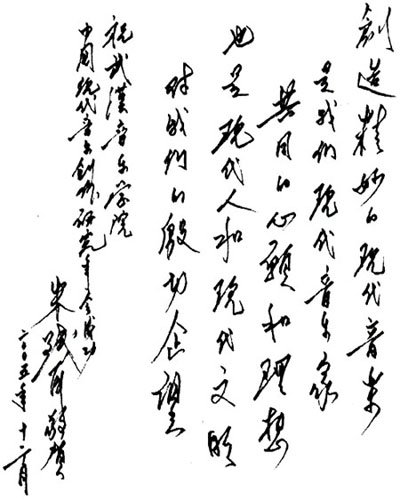 創造精妙的现代音乐
是我们现代音乐家
共同的心願和理想
也是现代人和现代文明
对我们的殷切企望
祝武漢音乐学院
中国现代音乐创作研究年会成功
朱践耳敬贺
二〇〇五年